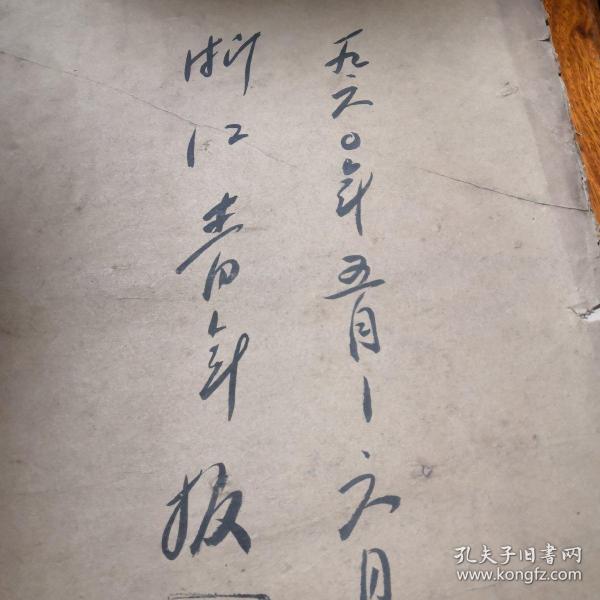 一九六〇年五月－六月
浙江青年报
孔夫子旧书网
www.kongfz.com